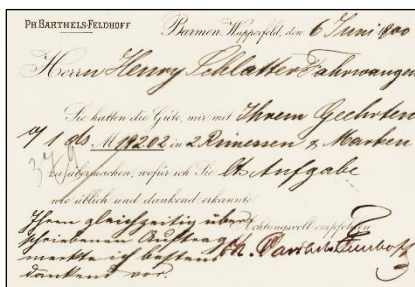 PH. BARTHELS-FELDHOFF
Barmen-Wupperfeld, den 6 Juni 1900
Herrn Henry Schlatter Fahrwangen
Sie hatten die Güte, mir mit Ihrem Geehrten
1 ds M 192.02 in 2 Rimessen & Marken
zu übermachen, wofür ich Sie lt. Aufgabe
wie üblich und dankend erkannte.
Ihren gleichzeitig über-
schriebenen Auftrag
merkte ich bestens
dankend vor.
Achtungsvoll empfohlen
Ph. Barthels-Feldhoff